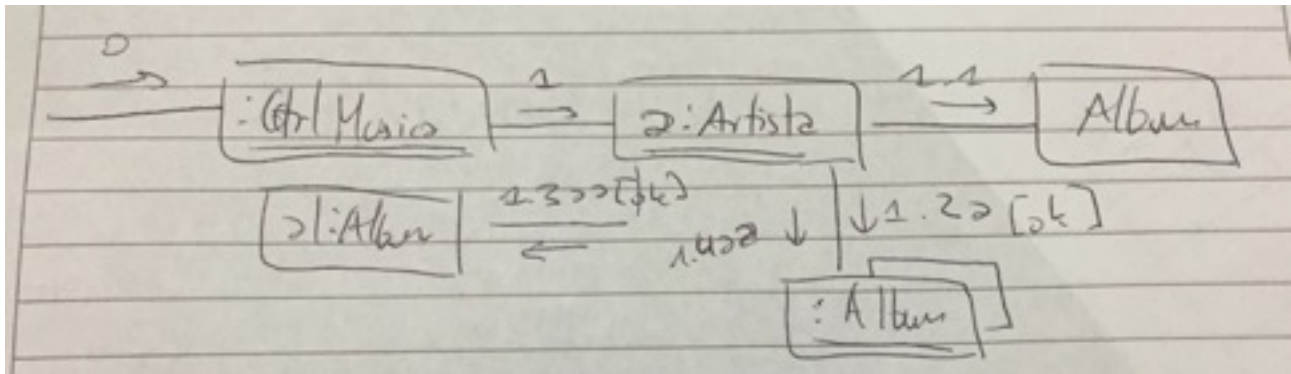 0 1 1.1
:Ctrl Musica a:Artista Album
al:Album 1.3aa[ok] 1.4aa 1.2a [ok]
:Album